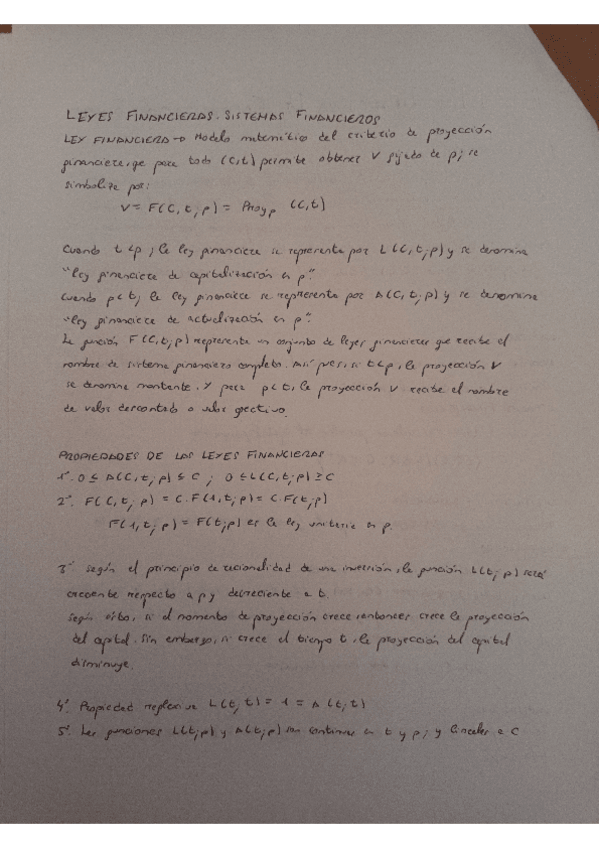 LEYES FINANCIERAS. SISTEMAS FINANCIEROS
LEY FINANCIERA → Modelo matemático del criterio de proyección
financiera, qe para todo (C,t) permite obtener V fijado de p; se
simboliza por:
V = F(C, t; p) = Proy p (C,t)
Cuando t < p, la ley financiera se representa por L(C, t; p) y se denomina
"ley financiera de capitalización en p".
Cuando p < t, la ley financiera se representa por A(C, t; p) y se denomina
"ley financiera de actualización en p".
La función F(C, t; p) representa un conjunto de leyes financieras que recibe el
nombre de sistema financiero completo. Así pues, si t < p, la proyección V
se denomina montante. Y para p < t, la proyección V recibe el nombre
de valor descontado o valor efectivo.
PROPIEDADES DE LAS LEYES FINANCIERAS
1ª. 0 ≤ A(C, t; p) ≤ C ; 0 ≤ L(C, t; p) ≥ C
2ª. F(C, t; p) = C · F(1, t; p) = C · F(t; p)
F(1, t; p) = F(t; p) es la ley unitaria en p.
3ª. Según el principio de racionalidad de una inversión, la función L(t; p) será
creciente respecto a p y decreciente a t.
Según esto, si el momento de proyección crece entonces crece la proyección
del capital. Sin embargo, si crece el tiempo t, la proyección del capital
disminuye.
4ª. Propiedad reflexiva L(t; t) = 1 = A(t; t)
5ª. Las funciones L(t; p) y A(t; p) son continuas en t y p; y lineales a C